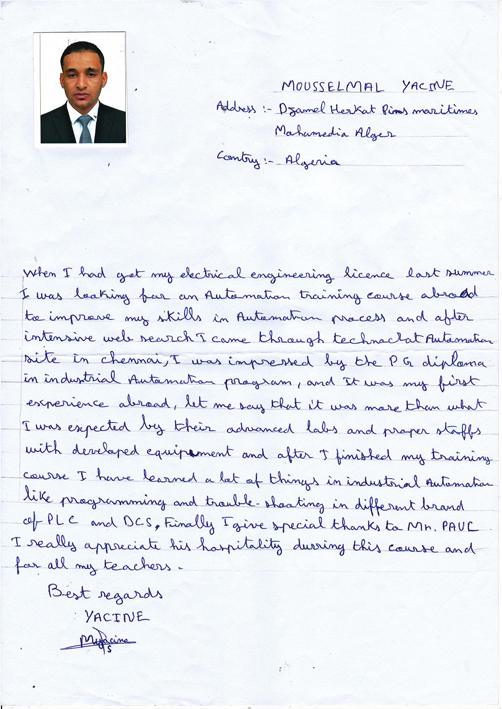 MOUSSELMAL YACINE
Address :- Djamel Herkat Pins maritimes
Mohamedia Alger
Contry :- Algeria
When I had get my electrical engineering licence last summer
I was looking for an Automation training course abroad
to improve my skills in Automation process and after
intensive web search I came through technoclat Automation
site in chennai, I was impressed by the PG diploma
in industrial Automation program, and It was my first
experience abroad, let me say that it was more than what
I was expected by their advanced labs and proper staffs
with developed equipment and after I finished my training
course I have learned a lot of things in industrial Automation
like programming and trouble-shooting in different brand
of PLC and DCS, Finally I give special thanks to Mr. PAUL
I really appreciate his hospitality durring this course and
for all my teachers.
Best regards
YACINE